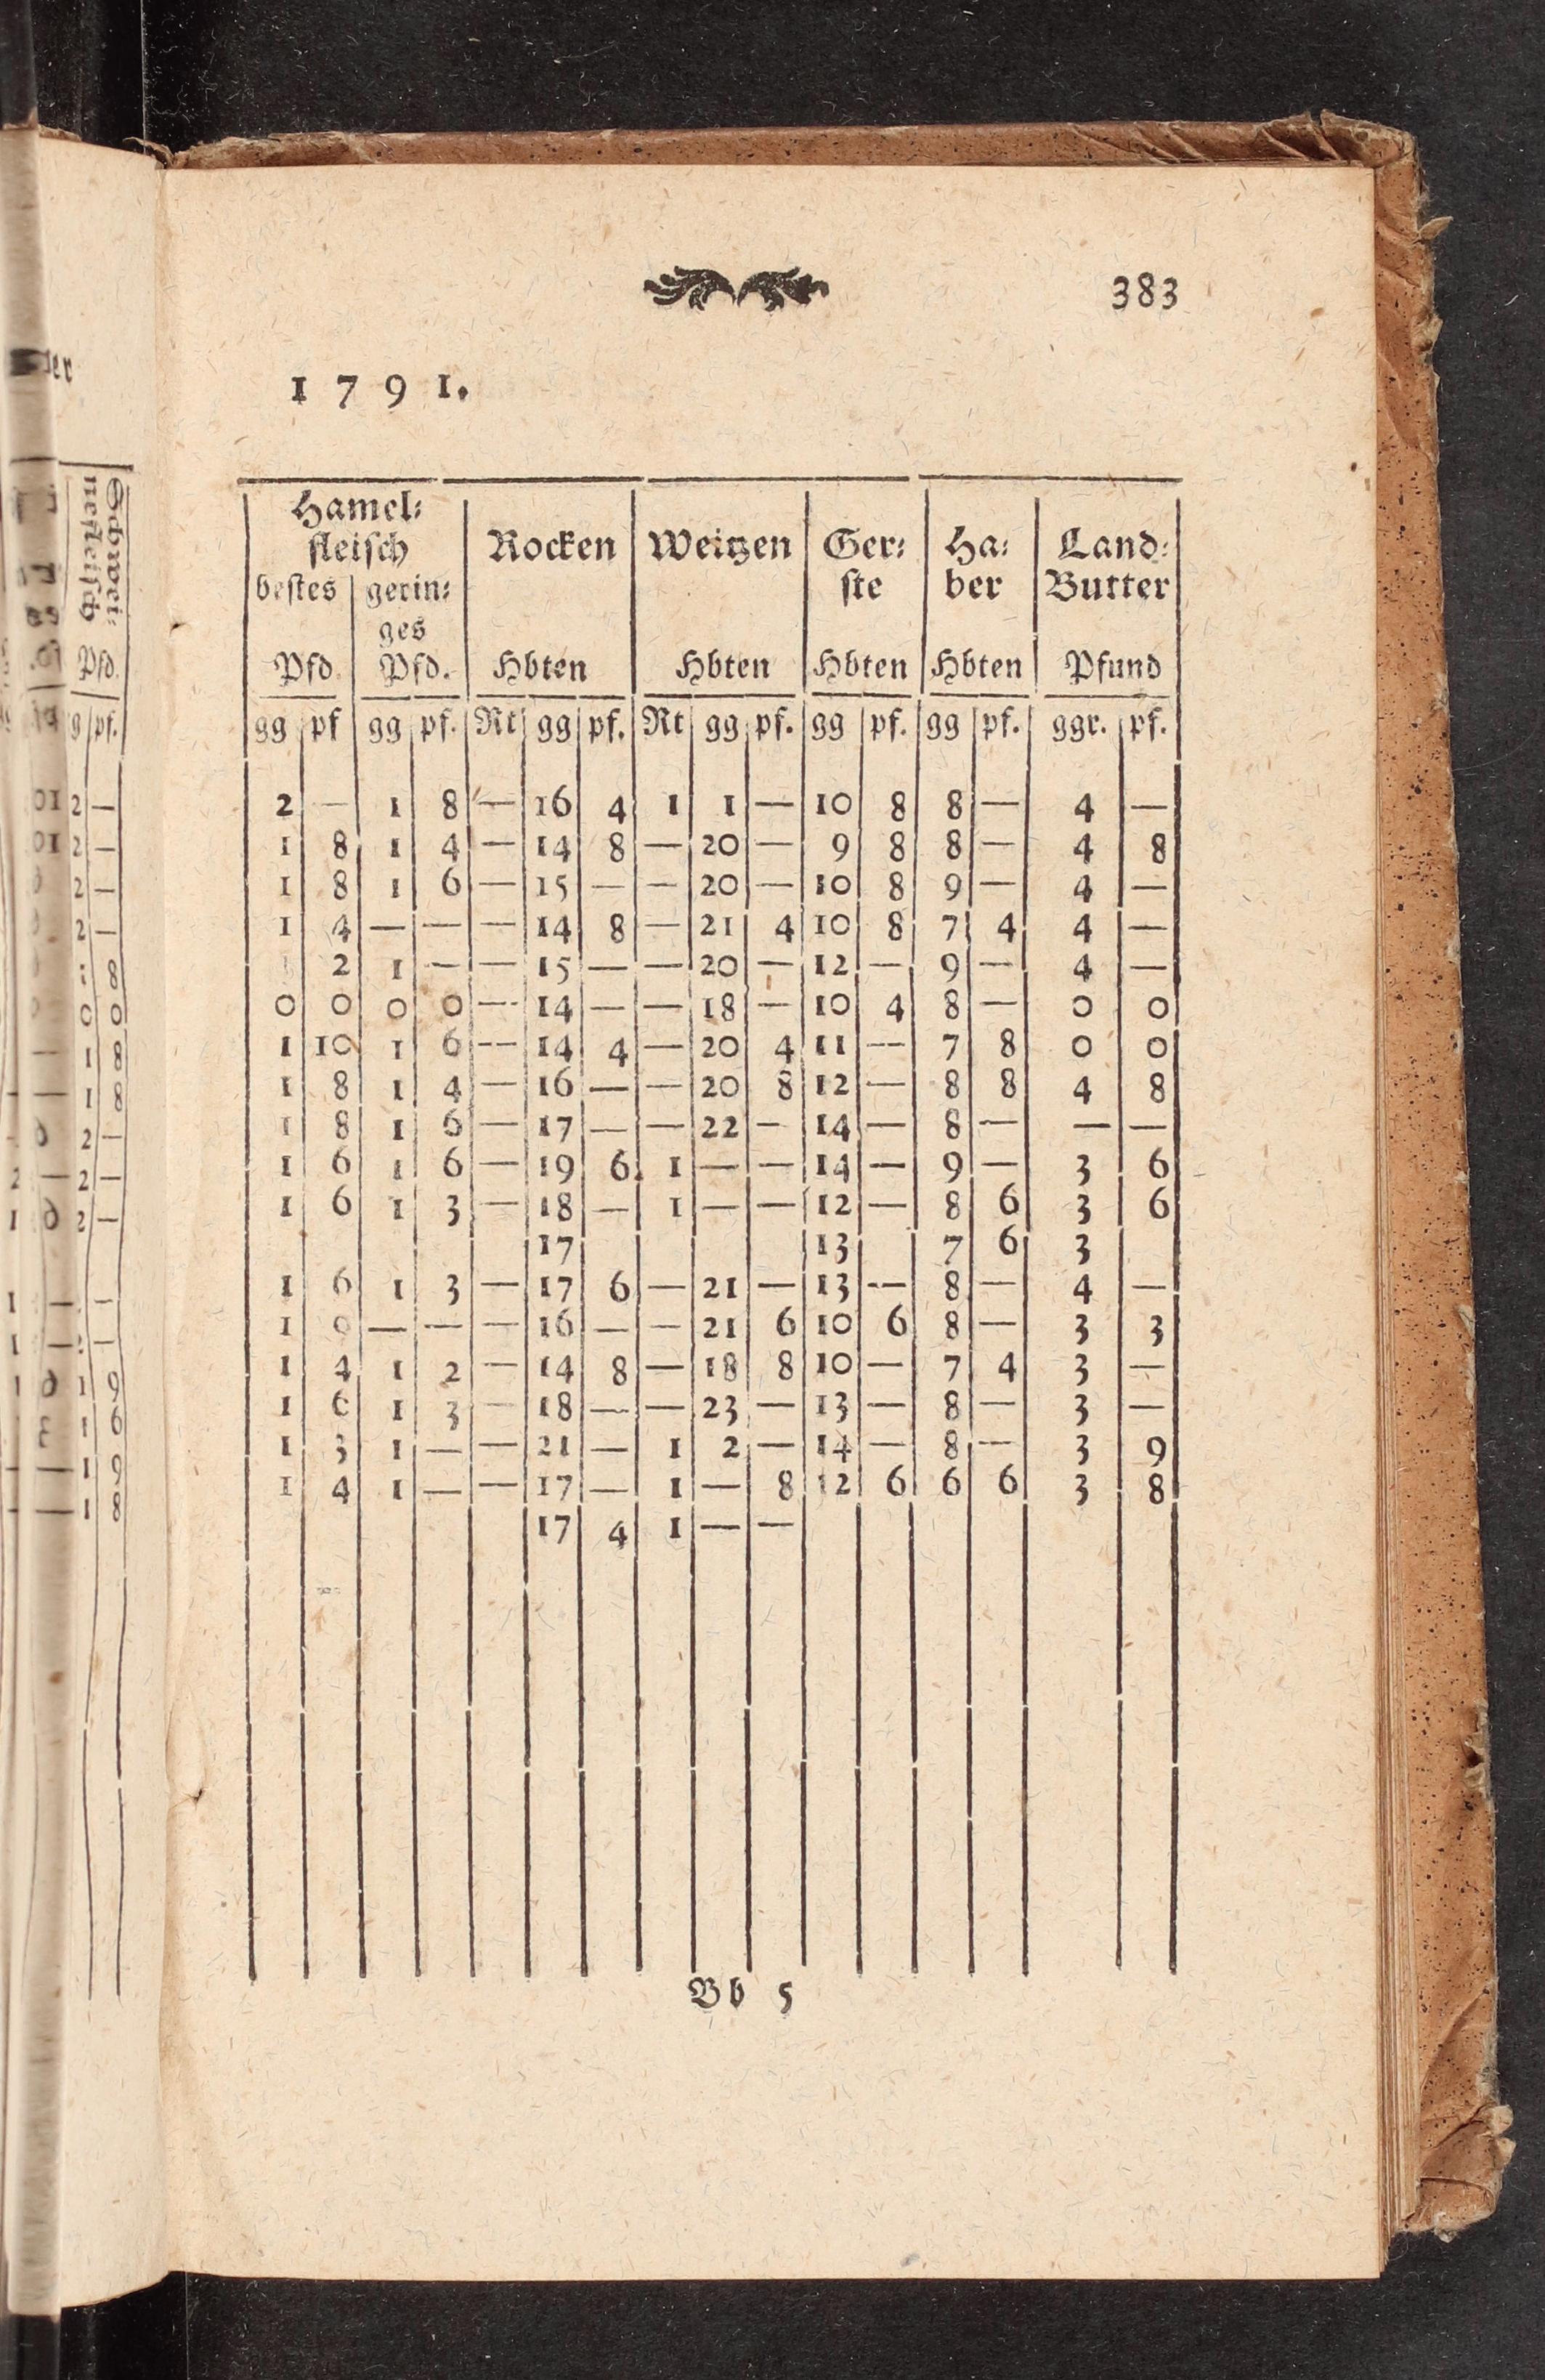 383
1791.
Hamel⸗
fleisch Rocken Weitzen Ger⸗ Ha⸗ Land⸗
bestes gerin⸗ ste ber Butter
ges
Pfd. Pfd. Hbten Hbten Hbten Hbten Pfund
gg pf gg pf. Rt gg pf. Rt gg pf. gg pf. gg pf. ggr. pf.
2 — 1 8 — 16 4 1 1 — 10 8 8 — 4 —
1 8 1 4 — 14 8 — 20 — 9 8 8 — 4 8
1 8 1 6 — 15 — — 20 — 10 8 9 — 4 —
1 4 — — — 14 8 — 21 4 10 8 7 4 4 —
2 1 — — 15 — — 20 — 12 — 9 — 4 —
0 0 0 0 — 14 — — 18 — 10 4 8 — 0 0
1 10 1 6 — 14 4 — 20 4 11 — 7 8 0 0
1 8 1 4 — 16 — — 20 8 12 — 8 8 4 8
1 8 1 6 — 17 — — 22 — 14 — 8 — — —
1 6 1 6 — 19 6 1 — — 14 — 9 — 3 6
1 6 1 3 — 18 — 1 — — 12 — 8 6 3 6
17 13 7 6 3
1 6 1 3 — 17 6 — 21 — 13 — 8 — 4 —
1 — — — 16 — — 21 6 10 6 8 — 3 3
1 4 1 2 — 14 8 — 18 8 10 — 7 4 3 —
1 6 1 3 — 18 — — 23 — 13 — 8 — 3 —
1 3 1 — — 21 — 1 2 — 14 — 8 — 3 9
1 4 1 — — 17 — 1 — 8 12 6 6 6 3 8
17 4 1 — —
Bb 5